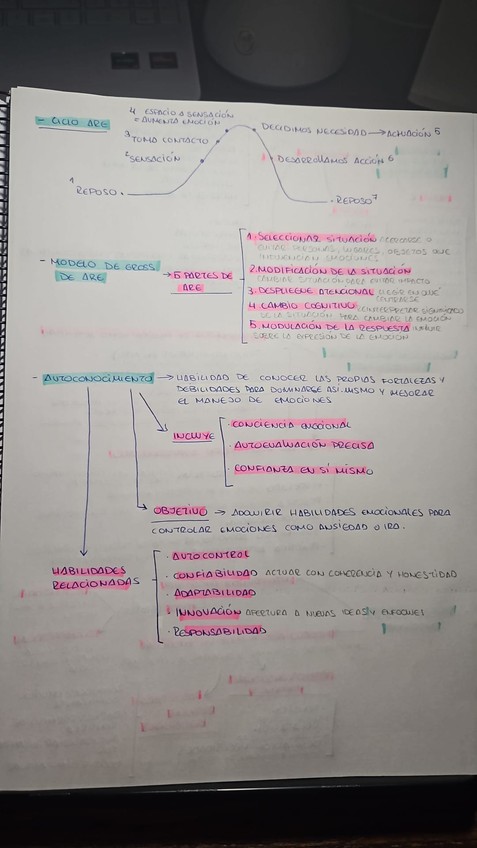 - CICLO ARE
4 ESPACIO A SENSACIÓN
= AUMENTA EMOCIÓN
3 TOMA CONTACTO
2 SENSACIÓN
1 REPOSO
DECIDIMOS NECESIDAD → ACTUACIÓN 5
DESARROLLAMOS ACCIÓN 6
REPOSO 7
- MODELO DE GROSS
DE ARE
→ 5 PARTES DE
ARE
1. SELECCIONAR SITUACIÓN ACERCARSE O
EVITAR PERSONAS, LUGARES, OBJETOS QUE
INFLUENCIAN EMOCIONES
2. MODIFICACIÓN DE LA SITUACIÓN
CAMBIAR SITUACIÓN PARA EVITAR IMPACTO
3. DESPLIEGUE ATENCIONAL ELEGIR EN QUÉ
CENTRARSE
4. CAMBIO COGNITIVO REINTERPRETAR SIGNIFICADO
DE LA SITUACIÓN PARA CAMBIAR LA EMOCIÓN
5. MODULACIÓN DE LA RESPUESTA INFLUIR
SOBRE LA EXPRESIÓN DE LA EMOCIÓN
- AUTOCONOCIMIENTO → HABILIDAD DE CONOCER LAS PROPIAS FORTALEZAS Y
DEBILIDADES PARA DOMINARSE ASÍ MISMO Y MEJORAR
EL MANEJO DE EMOCIONES
INCLUYE
· CONCIENCIA EMOCIONAL
· AUTOEVALUACIÓN PRECISA
· CONFIANZA EN SÍ MISMO
OBJETIVO → ADQUIRIR HABILIDADES EMOCIONALES PARA
CONTROLAR EMOCIONES COMO ANSIEDAD O IRA.
HABILIDADES
RELACIONADAS
· AUTOCONTROL
· CONFIABILIDAD ACTUAR CON COHERENCIA Y HONESTIDAD
· ADAPTABILIDAD
· INNOVACIÓN APERTURA A NUEVAS IDEAS Y ENFOQUES
· RESPONSABILIDAD